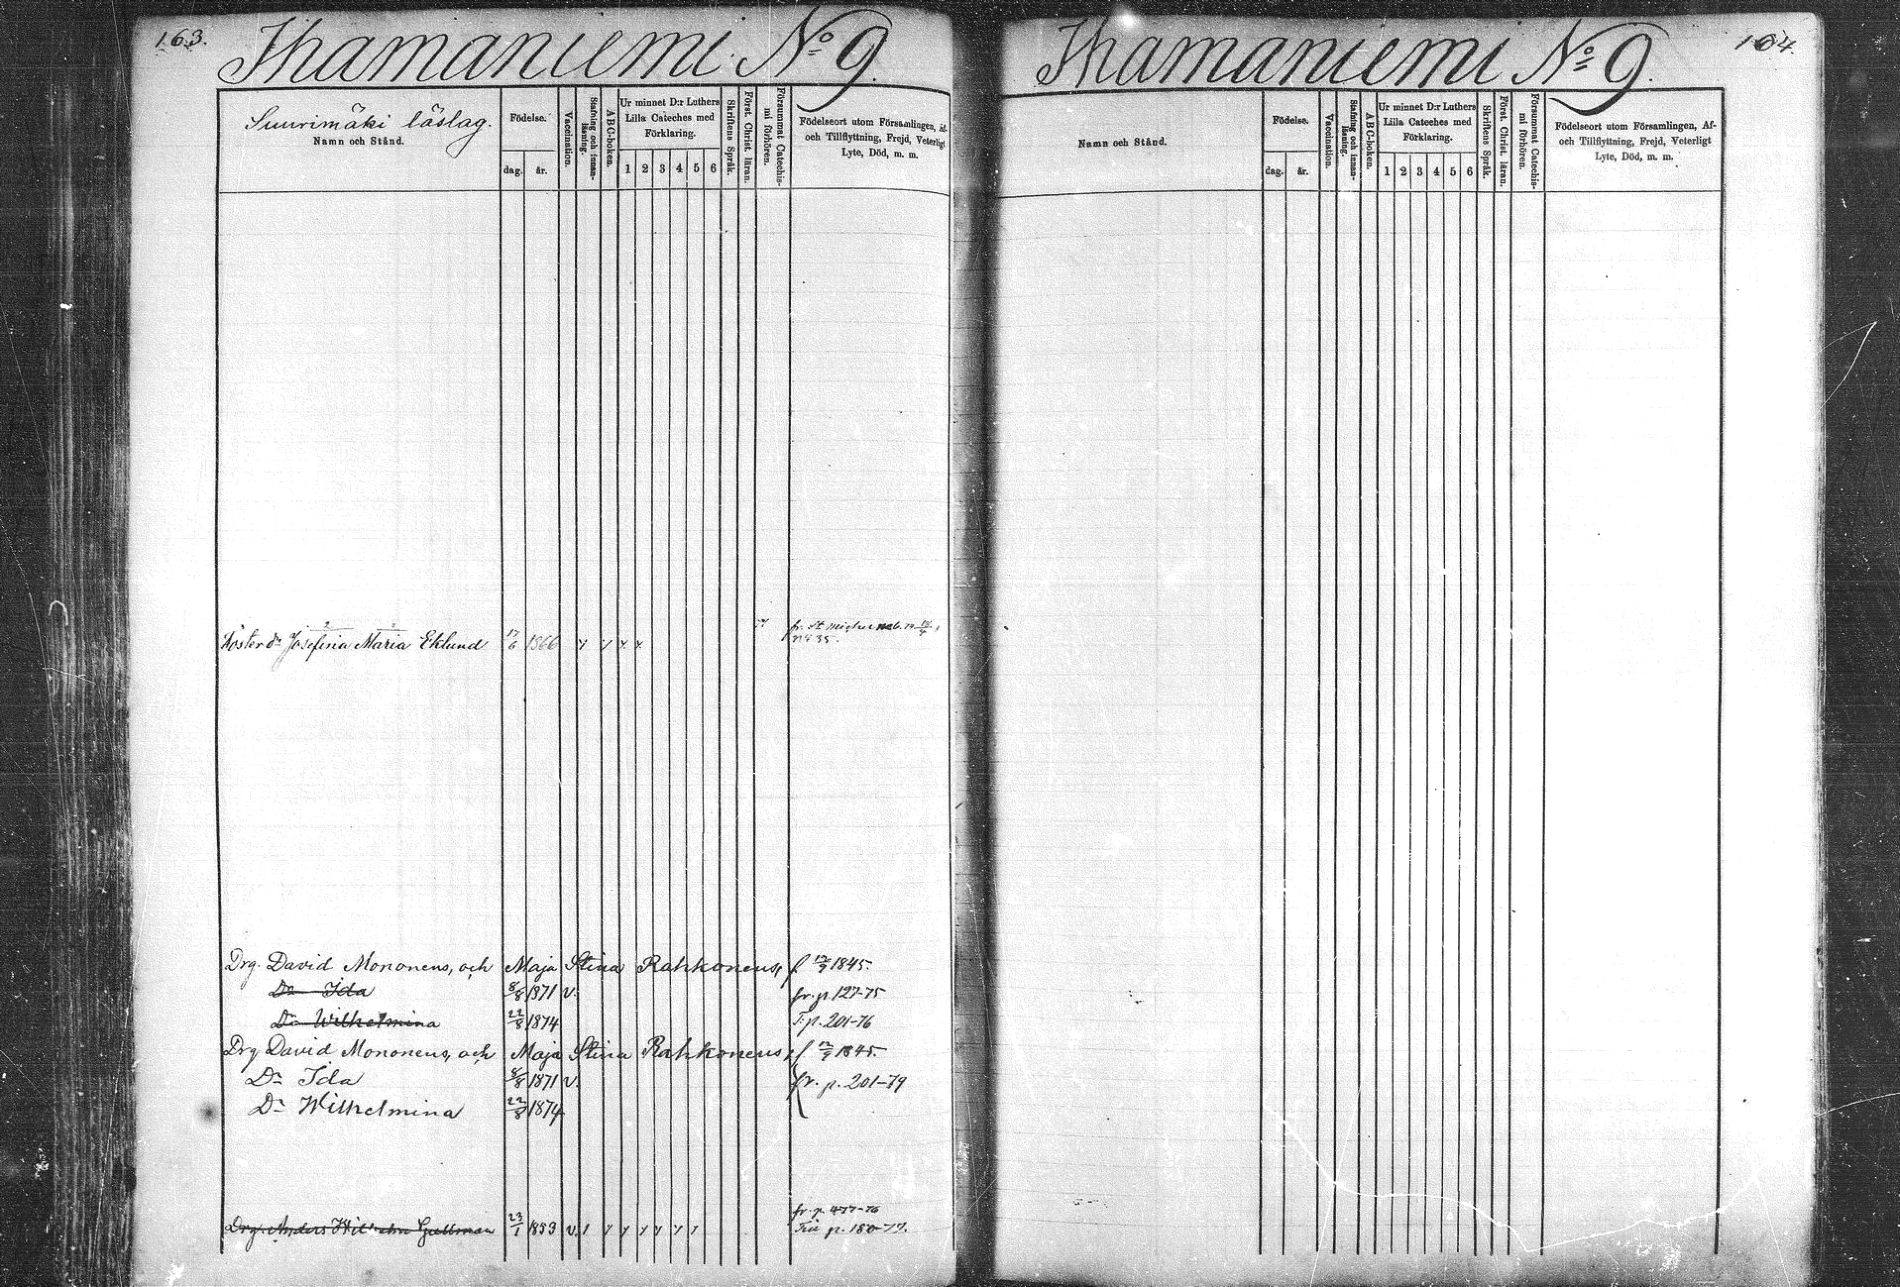 163.
Ihamaniemi No 9.
Suurimäki läslag.
Namn och Stånd.
Födelse.
dag.
år.
Vaccination.
Stafning och innanläsning.
ABC-boken.
Ur minnet D:r Luthers
Lilla Cateches med
Förklaring.
1 2 3 4 5 6
Skriftens Språk.
Först. Christ. läran.
Försummat Catechismi förhören.
Födelseort utom Församlingen,
och Tillflyttning, Frejd, Veterligt
Lyte, Död, m. m.
fr. St Michel
No 35.
Josefina Maria Eklund 17/6 1866
Drg. David Mononens, och Maja Stina Rahkonens, f. 12/9 1845.
Dr Ida 8/8 1871 v. fr. p. 127-75
Dr Wilhelmina 22/8 1874 T. p. 201-76
Drg David Mononens, och Maja Stina Rahkonens, f. 12/9 1845.
Dr Ida 8/8 1871 v. fr. p. 201-79
Dr Wilhelmina 22/8 1874
fr. p. 477-76
Drg. Anders 23/1 1853 v. p. 180-77.
164.
Ihamaniemi No 9.
Namn och Stånd.
Födelse.
dag.
år.
Vaccination.
Stafning och innanläsning.
ABC-boken.
Ur minnet D:r Luthers
Lilla Cateches med
Förklaring.
1 2 3 4 5 6
Skriftens Språk.
Först. Christ. läran.
Försummat Catechismi förhören.
Födelseort utom Församlingen, Af-
och Tillflyttning, Frejd, Veterligt
Lyte, Död, m. m.